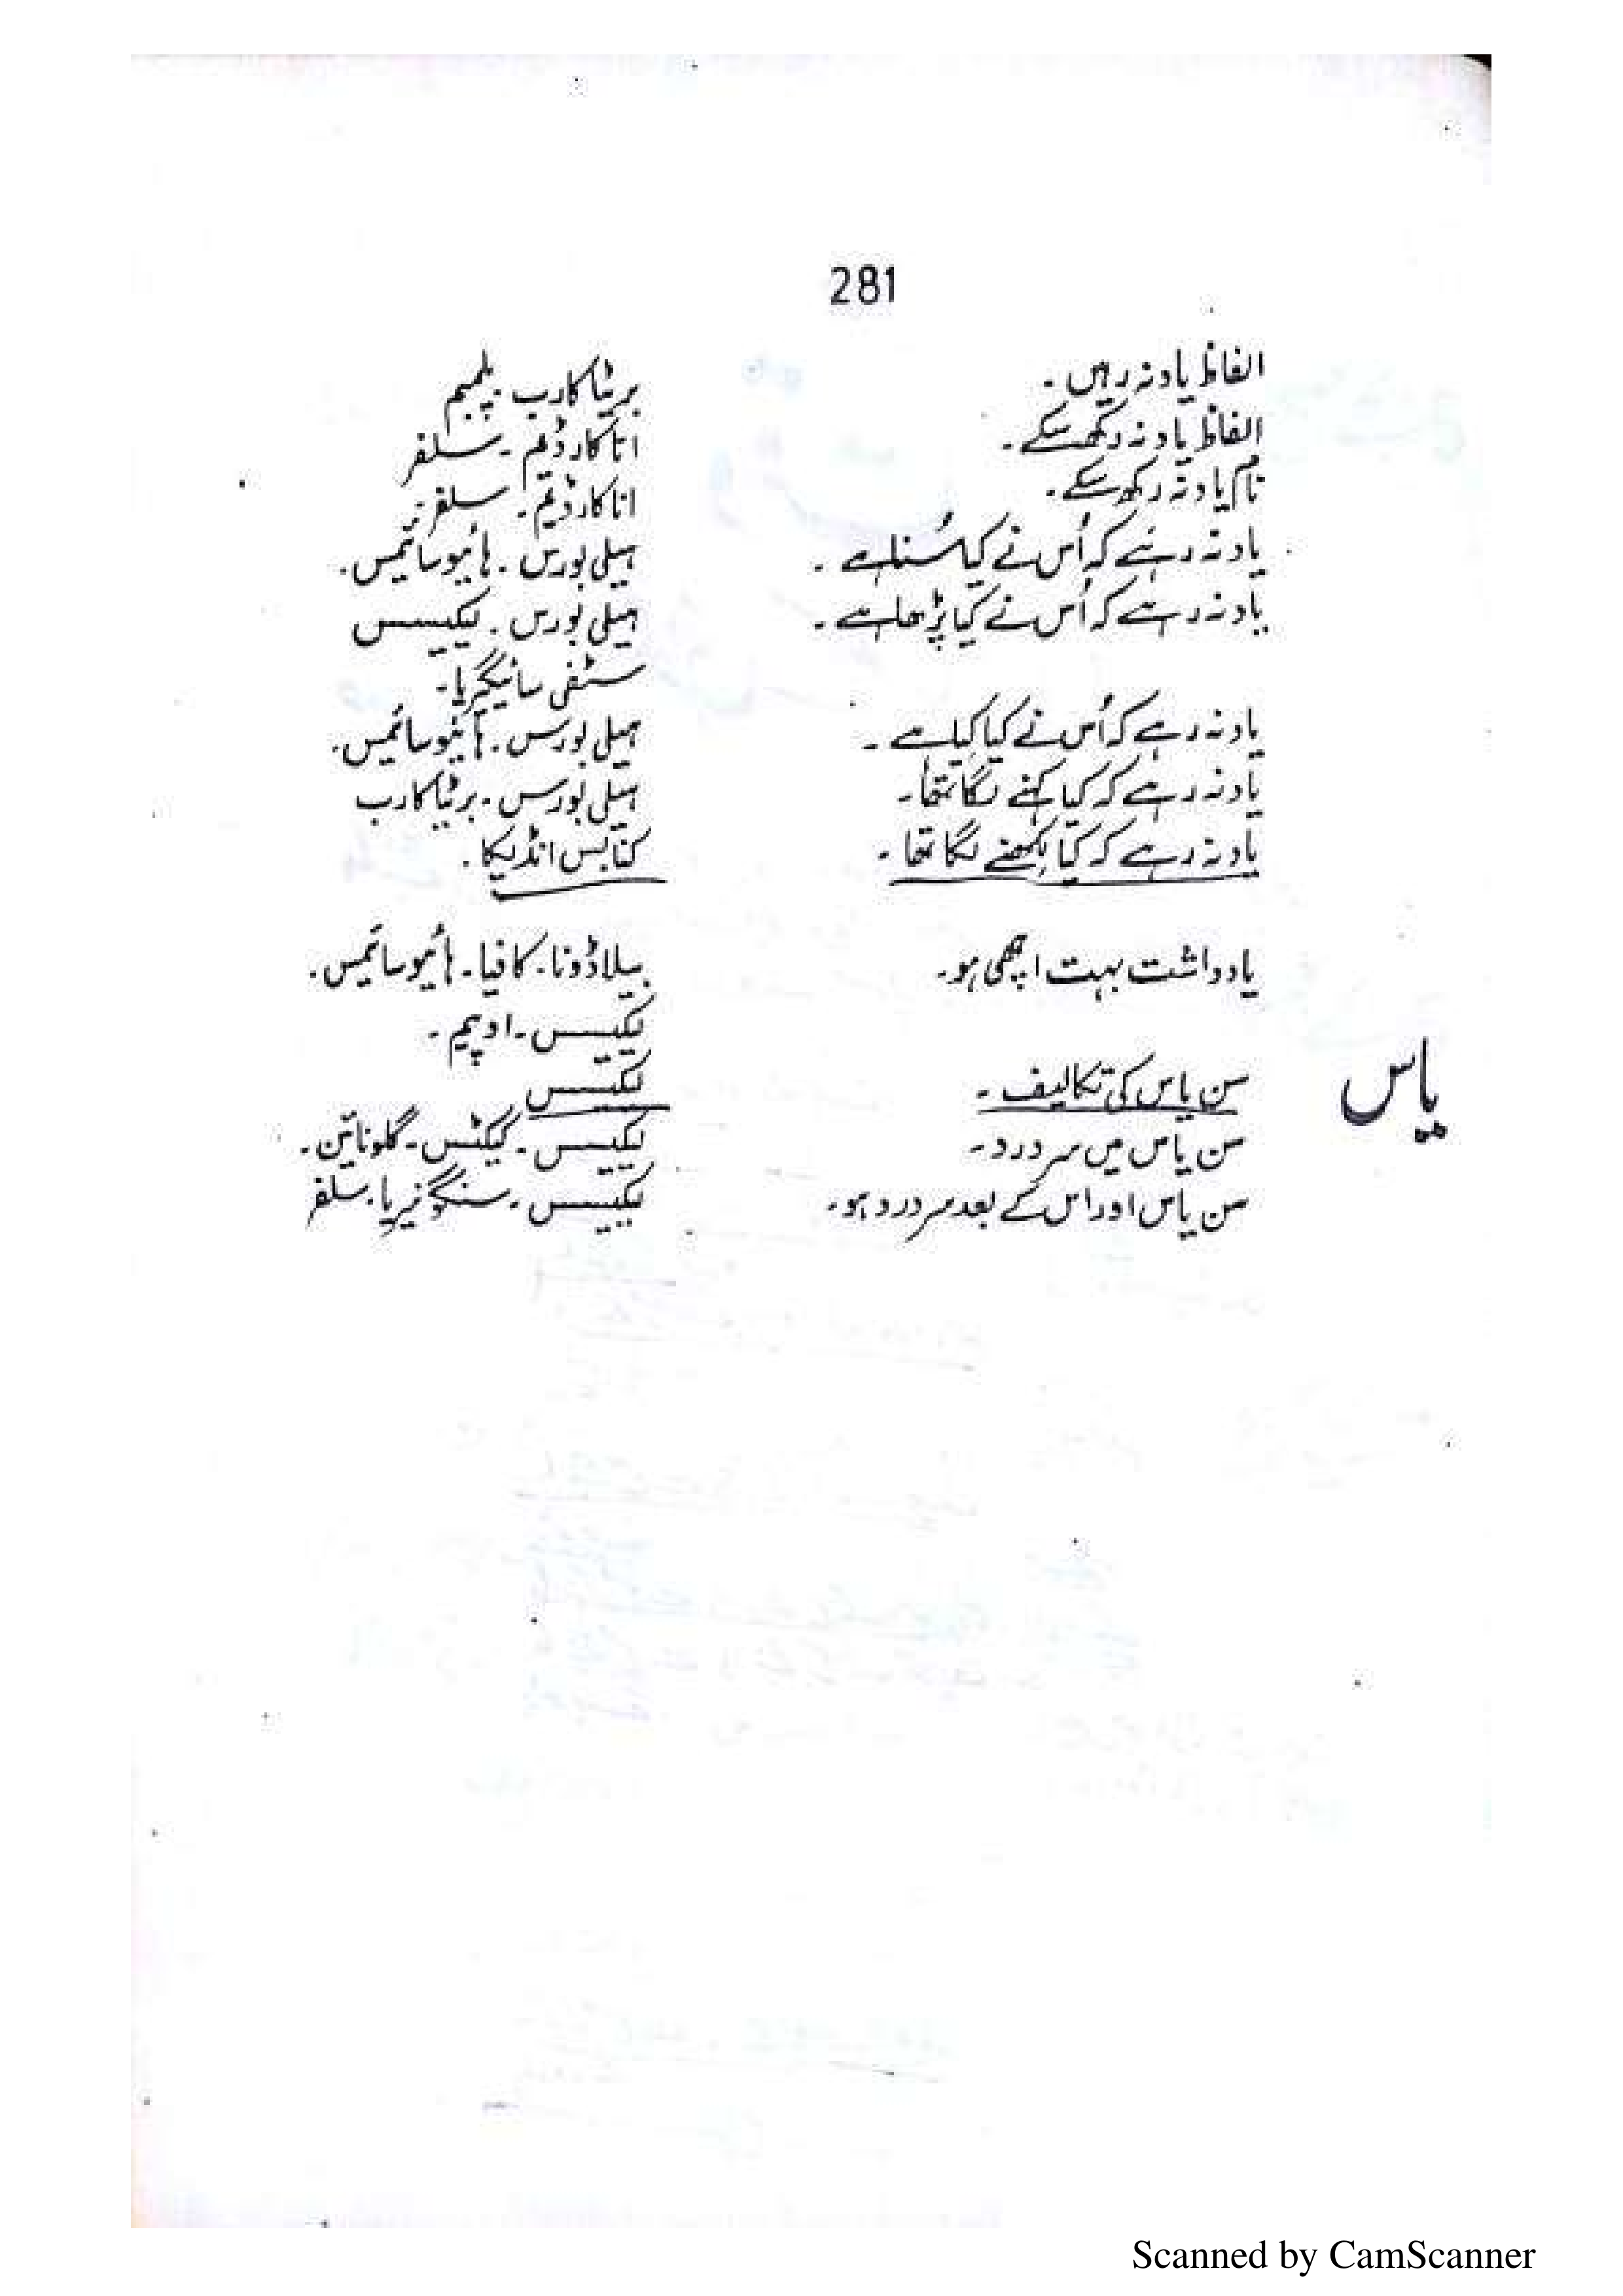 281
الفاظ یاد نہ رہیں۔ برٹیا کارب۔ پلمبم
الفاظ یاد نہ رکھ سکے۔ انا کارڈیم۔ سلفر
نام یاد نہ رکھ سکے۔ انا کارڈیم۔ سلفر۔
یاد نہ رہے کہ اُس نے کیا سُنا ہے۔ ہیلی بورس۔ ہائیوسائمس۔
یاد نہ رہے کہ اُس نے کیا پڑھا ہے۔ ہیلی بورس۔ لیکیسس
سٹفی سائیگریا۔
یاد نہ رہے کہ اُس نے کیا کیا ہے۔ ہیلی بورس۔ ہائیوسائمس۔
یاد نہ رہے کہ کیا کہنے لگا تھا۔ ہیلی بورس۔ برٹیا کارب
یاد نہ رہے کہ کیا لکھنے لگا تھا۔ کنابس انڈیکا۔
یادداشت بہت اچھی ہو۔ بیلاڈونا۔ کافیا۔ ہائیوسائمس۔
لیکیسس۔ اوپیم۔
یاس سن یاس کی تکالیف۔ لیکیسس
سن یاس میں سر درد۔ لیکیسس۔ کیکٹس۔ گلونائن۔
سن یاس اور اس کے بعد سر درد ہو۔ لیکیسس۔ سنگونیریا۔ سلفر
Scanned by CamScanner